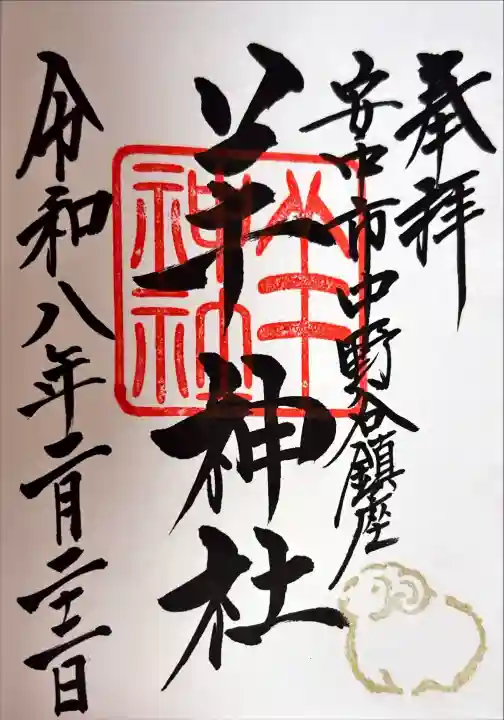 奉拝
安中市中野谷鎮座
羊神社
羊神社
令和八年二月二十二日